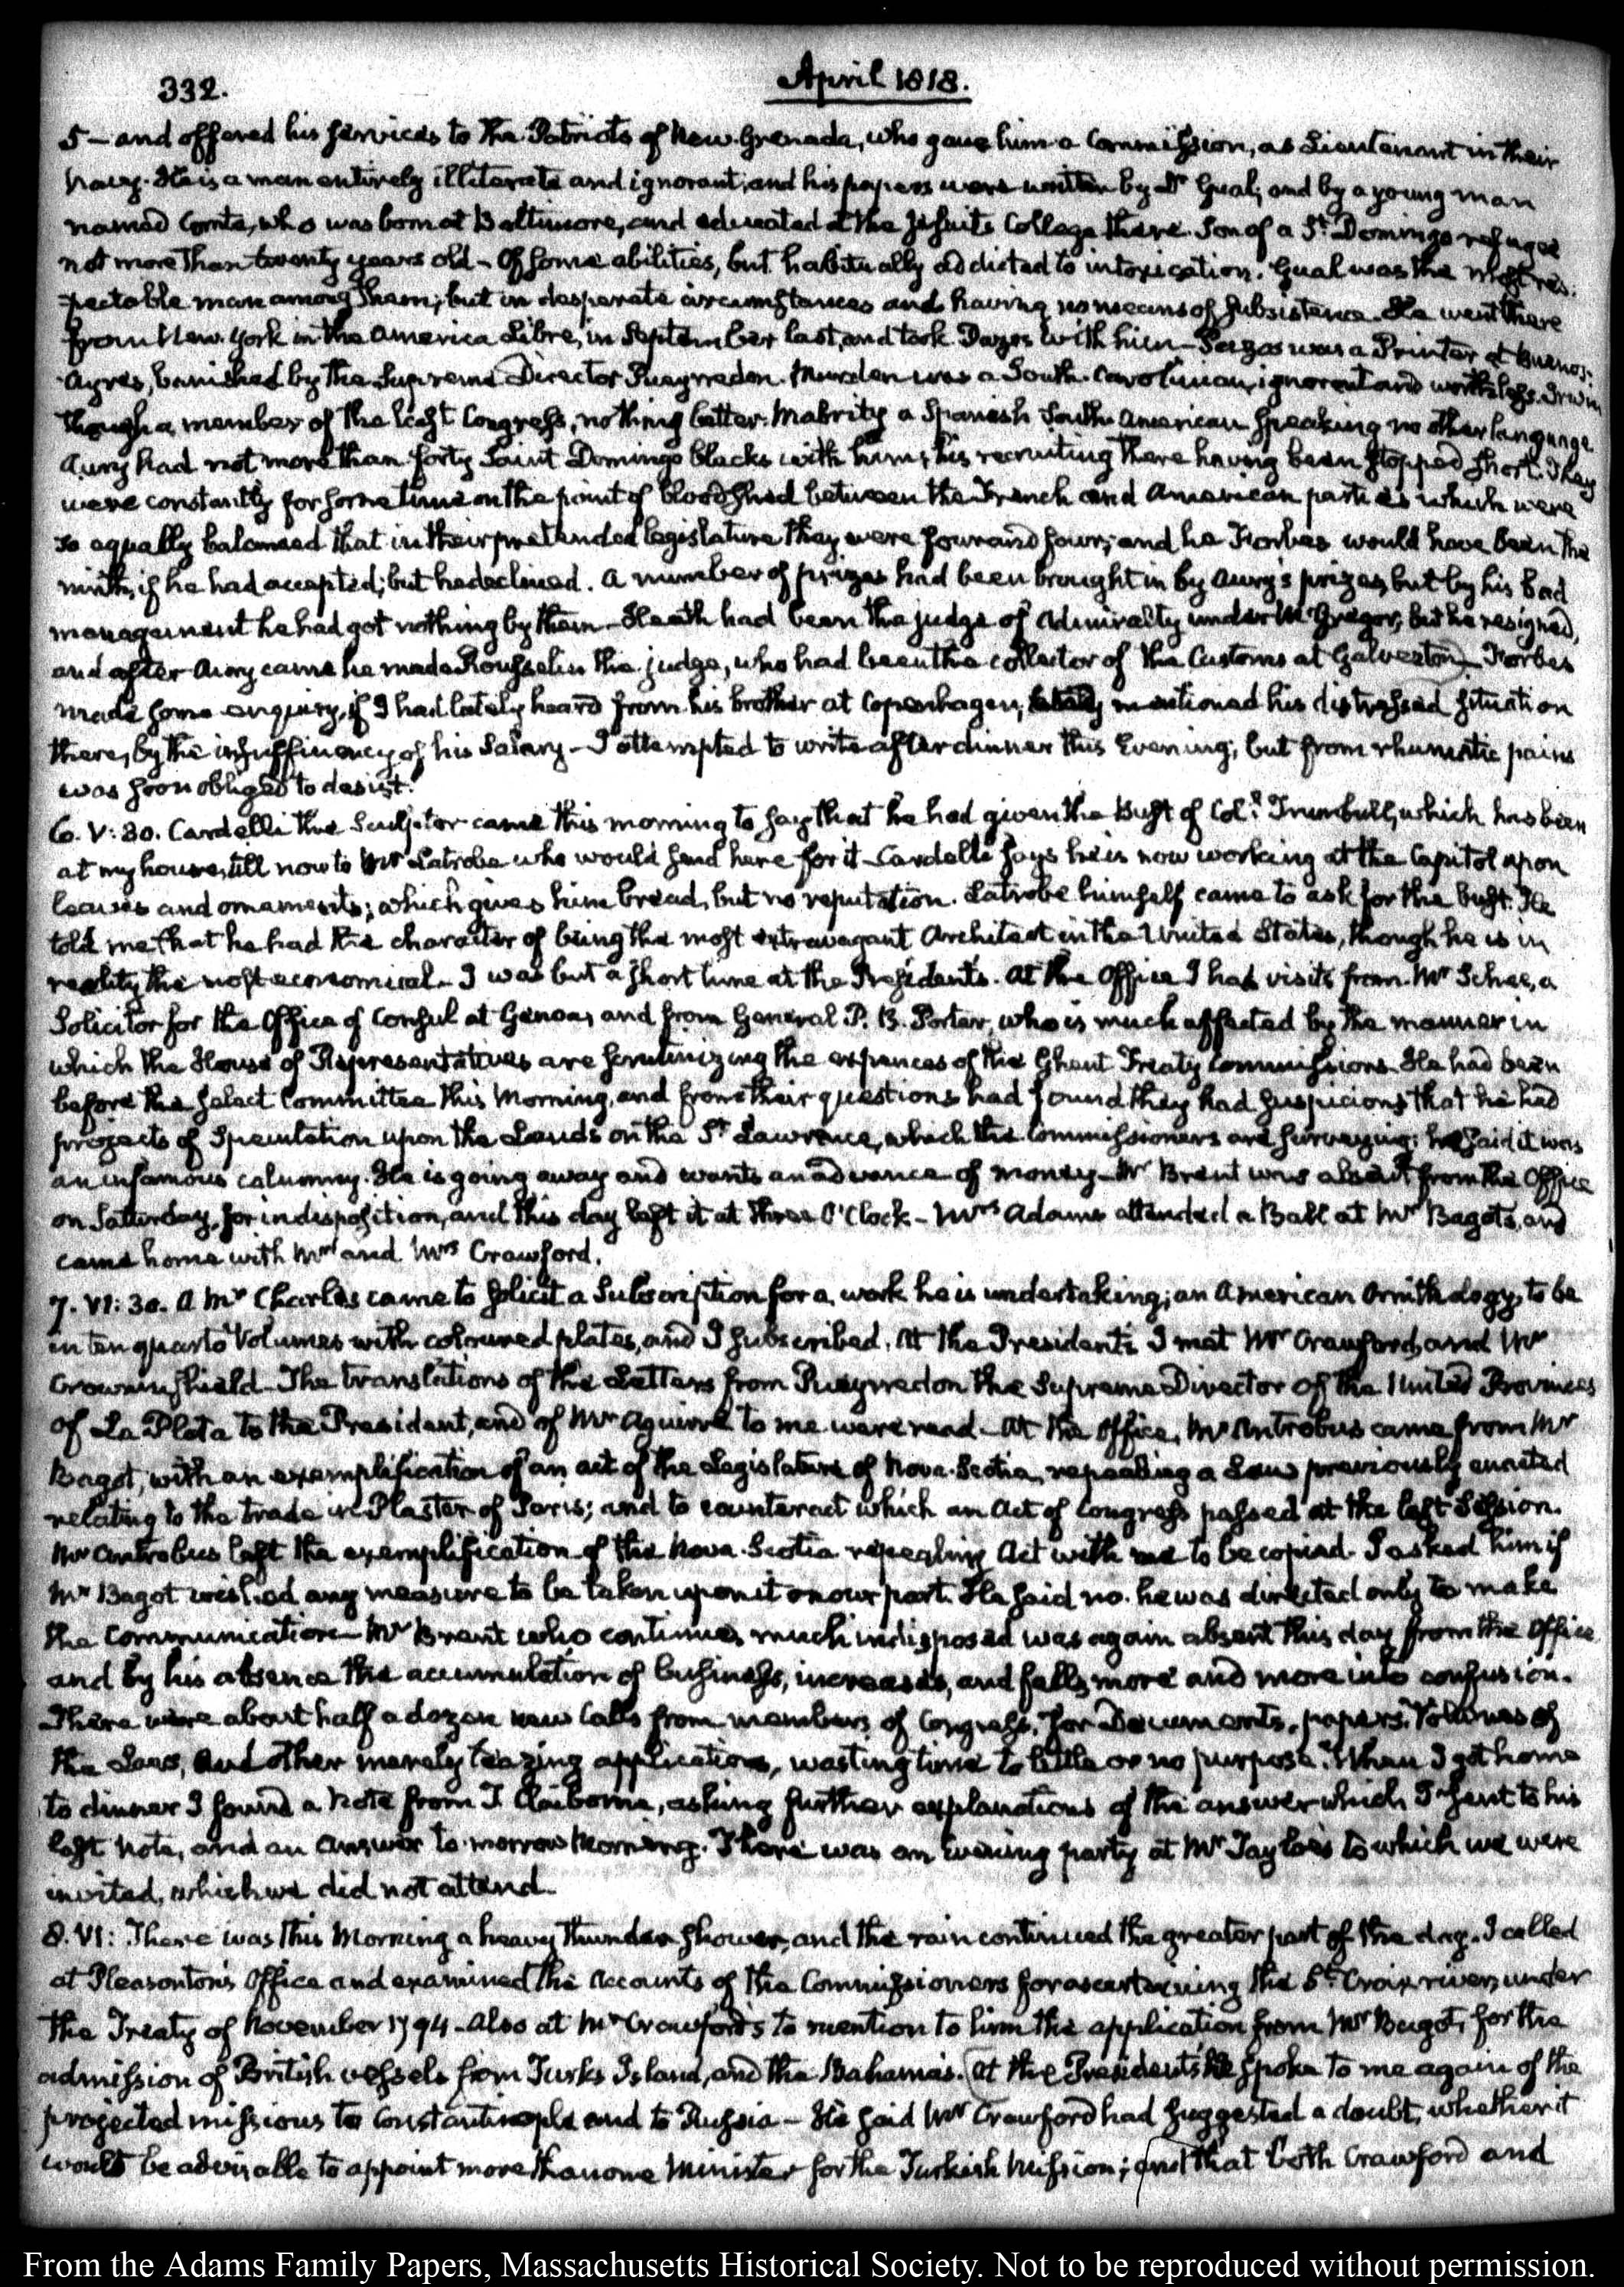 332. April 1818.
5 — and offered his services to the Patriots of New-Grenada, who gave him a Commission, as Lieutenant in their
Navy. He is a man entirely illiterate and ignorant, and his papers were written by Dr Gual, and by a young man
named Comte, who was born at Baltimore, and educated at the Jesuits College there. Son of a St. Domingo refugee
not more than twenty years old — Of some abilities, but habitually addicted to intoxication. Gual was the most res-
pectable man among them; but in desperate circumstances and having no means of subsistence. He went there
from New-York in the America Libre, in September last, and took Pazos with him — Pazos was a Printer at Buenos-
Ayres, banished by the Supreme Director Pueyrredon. Murden was a South-Carolinian, ignorant and worthless. Irwin
though a member of the last Congress, nothing better. Mabrity a Spanish South-American speaking no other language.
Aury had not more than forty Saint Domingo blacks with him, his recruiting there having been stopped short. They
were constantly for some time on the point of bloodshed between the French and American parties which were
so equally balanced that in their pretended legislature they were four and four; and he Forbes would have been the
ninth, if he had accepted; but he declined. A number of prizes had been brought in by Aury's prizes, but by his bad
management he had got nothing by them — Heath had been the judge of Admiralty under McGregor, but he resigned,
and after Aury came he made Rousselin the judge, who had been the collector of the Customs at Galveston — Forbes
made some enquiry, if I had lately heard from his brother at Copenhagen, mentioned his distressed situation
there, by the insufficiency of his Salary — I attempted to write after dinner this Evening; but from rhumatic pains
was soon obliged to desist.
6. V:30. Cardelli the Sculptor came this morning to say that he had given the Bust of Coll. Trumbull, which has been
at my house, till now to Mr Latrobe who would send here for it — Cardelli says he is now working at the Capitol upon
leaves and ornaments; which gives him bread, but no reputation. Latrobe himself came to ask for the bust. He
told me that he had the character of being the most extravagant Architect in the United States, though he is in
reality the most economical — I was but a short time at the President's. At the Office I had visits from Mr Schee, a
Solicitor for the Office of Consul at Genoa, and from General P. B. Porter, who is much affected by the manner in
which the House of Representatives are scrutinizing the expences of the Ghent Treaty Commissions. He had been
before the select Committee this Morning, and from their questions had found they had suspicions that he had
projects of Speculation upon the Lands on the St Lawrence, which the Commissioners are surveying; he said it was
an infamous calumny. He is going away and wants an advance of money — Mr Brent was absent from the Office
on Satturday, for indisposition, and this day left it at three O'Clock — Mrs Adams attended a Ball at Mr Bagot's, and
came home with Mr and Mrs Crawford.
7. VI:30. A Mr Charles came to solicit a Subscription for a work he is undertaking; an American Ornithology, to be
in ten quarto Volumes with coloured plates, and I subscribed. At the Presidents I met Mr Crawford, and Mr
Crowninshield — The translations of the Letters from Pueyrredon the Supreme Director of the United Provinces
of La Plata to the President, and of Mr Aguirre to me were read — At the Office, Mr Antrobus came from Mr
Bagot, with an exemplification of an act of the Legislature of Nova-Scotia, repealing a Law previously enacted
relating to the trade in Plaster of Paris; and to counteract which an Act of Congress passed at the last Session.
Mr Antrobus left the exemplification of the Nova-Scotia repealing Act with me to be copied. I asked him if
Mr Bagot wished any measure to be taken upon it on our part. He said no. he was directed only to make
the Communication — Mr Brent who continues much indisposed was again absent this day from the Office
and by his absence the accumulation of business, increases, and falls more and more into confusion.
There were about half a dozen new Calls from members of Congress, for Documents, papers, Volumes of
the Laws, and other merely teazing applications, wasting time to little or no purpose. When I got home
to dinner I found a Note from T. Claiborne, asking further explanations of the answer which I sent to his
last Note, and an Answer to-morrow Morning. There was an Evening party at Mr Tayloe's to which we were
invited, which we did not attend.
8. VI: There was this Morning a heavy thunder shower, and the rain continued the greater part of the day. I called
at Pleasonton's Office and examined the Accounts of the Commissioners for ascertaining the St. Croix river, under
the Treaty of November 1794 — Also at Mr Crawford's to mention to him the application from Mr Bagot, for the
admission of British vessels from Turks Island, and the Bahamas. At the President's he spoke to me again of the
projected missions to Constantinople and to Russia — He said Mr Crawford had suggested a doubt, whether it
would be advisable to appoint more than one Minister for the Turkish Mission; and that both Crawford and
From the Adams Family Papers, Massachusetts Historical Society. Not to be reproduced without permission.